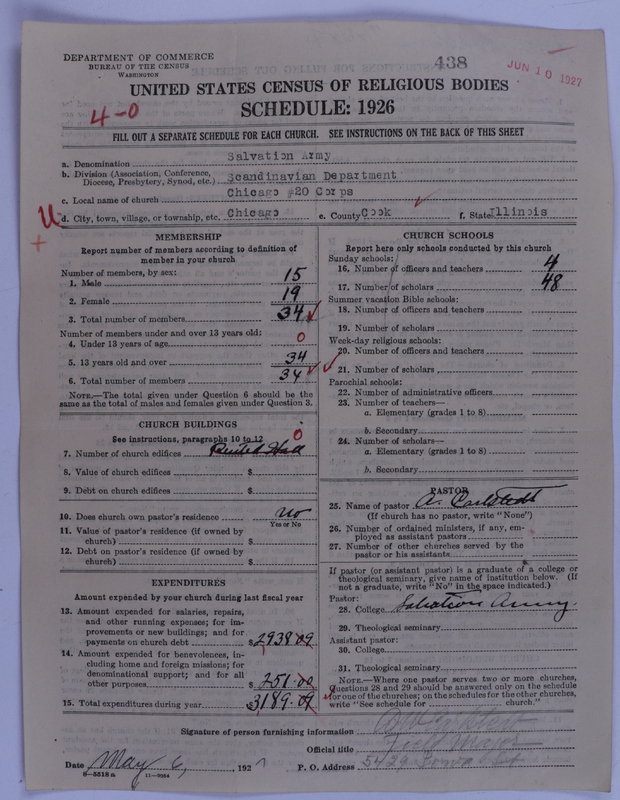 438
JUN 10 1927
DEPARTMENT OF COMMERCE
BUREAU OF THE CENSUS
WASHINGTON
UNITED STATES CENSUS OF RELIGIOUS BODIES
SCHEDULE: 1926
4-0
FILL OUT A SEPARATE SCHEDULE FOR EACH CHURCH. SEE INSTRUCTIONS ON THE BACK OF THIS SHEET
a. Denomination Salvation Army
b. Division (Association, Conference, Diocese, Presbytery, Synod, etc.) Scandinavian Department
c. Local name of church Chicago #20 Corps
U d. City, town, village, or township, etc. Chicago e. County Cook f. State Illinois
MEMBERSHIP
Report number of members according to definition of
member in your church
Number of members, by sex:
1. Male 15
2. Female 19
3. Total number of members 34
Number of members under and over 13 years old:
4. Under 13 years of age 0
5. 13 years old and over 34
6. Total number of members 34
NOTE.—The total given under Question 6 should be the
same as the total of males and females given under Question 3.
CHURCH BUILDINGS
See instructions, paragraphs 10 to 12 0
7. Number of church edifices Rented Hall
8. Value of church edifices $
9. Debt on church edifices $
10. Does church own pastor's residence No
Yes or No
11. Value of pastor's residence (if owned by
church) $
12. Debt on pastor's residence (if owned by
church) $
EXPENDITURES
Amount expended by your church during last fiscal year
13. Amount expended for salaries, repairs,
and other running expenses; for im-
provements or new buildings; and for
payments on church debt $2938.09
14. Amount expended for benevolences, in-
cluding home and foreign missions; for
denominational support; and for all
other purposes $251.00
15. Total expenditures during year $3189.09
CHURCH SCHOOLS
Report here only schools conducted by this church
Sunday schools:
16. Number of officers and teachers 4
17. Number of scholars 48
Summer vacation Bible schools:
18. Number of officers and teachers
19. Number of scholars
Week-day religious schools:
20. Number of officers and teachers
21. Number of scholars
Parochial schools:
22. Number of administrative officers
23. Number of teachers—
a. Elementary (grades 1 to 8)
b. Secondary
24. Number of scholars—
a. Elementary (grades 1 to 8)
b. Secondary
PASTOR
25. Name of pastor A. Carlstedt
(If church has no pastor, write "None")
26. Number of ordained ministers, if any, em-
ployed as assistant pastors
27. Number of other churches served by the
pastor or his assistants
If pastor (or assistant pastor) is a graduate of a college or
theological seminary, give name of institution below. (If
not a graduate, write "No" in the space indicated.)
Pastor:
28. College Salvation Army
29. Theological seminary
Assistant pastor:
30. College
31. Theological seminary
NOTE.—Where one pastor serves two or more churches,
Questions 28 and 29 should be answered only on the schedule
for one of the churches; on the schedules for the other churches,
write "See schedule for church."
Signature of person furnishing information
Official title Major
Date May 6, 1927 P. O. Address 5429 Iowa St
8—5518a 11—9084